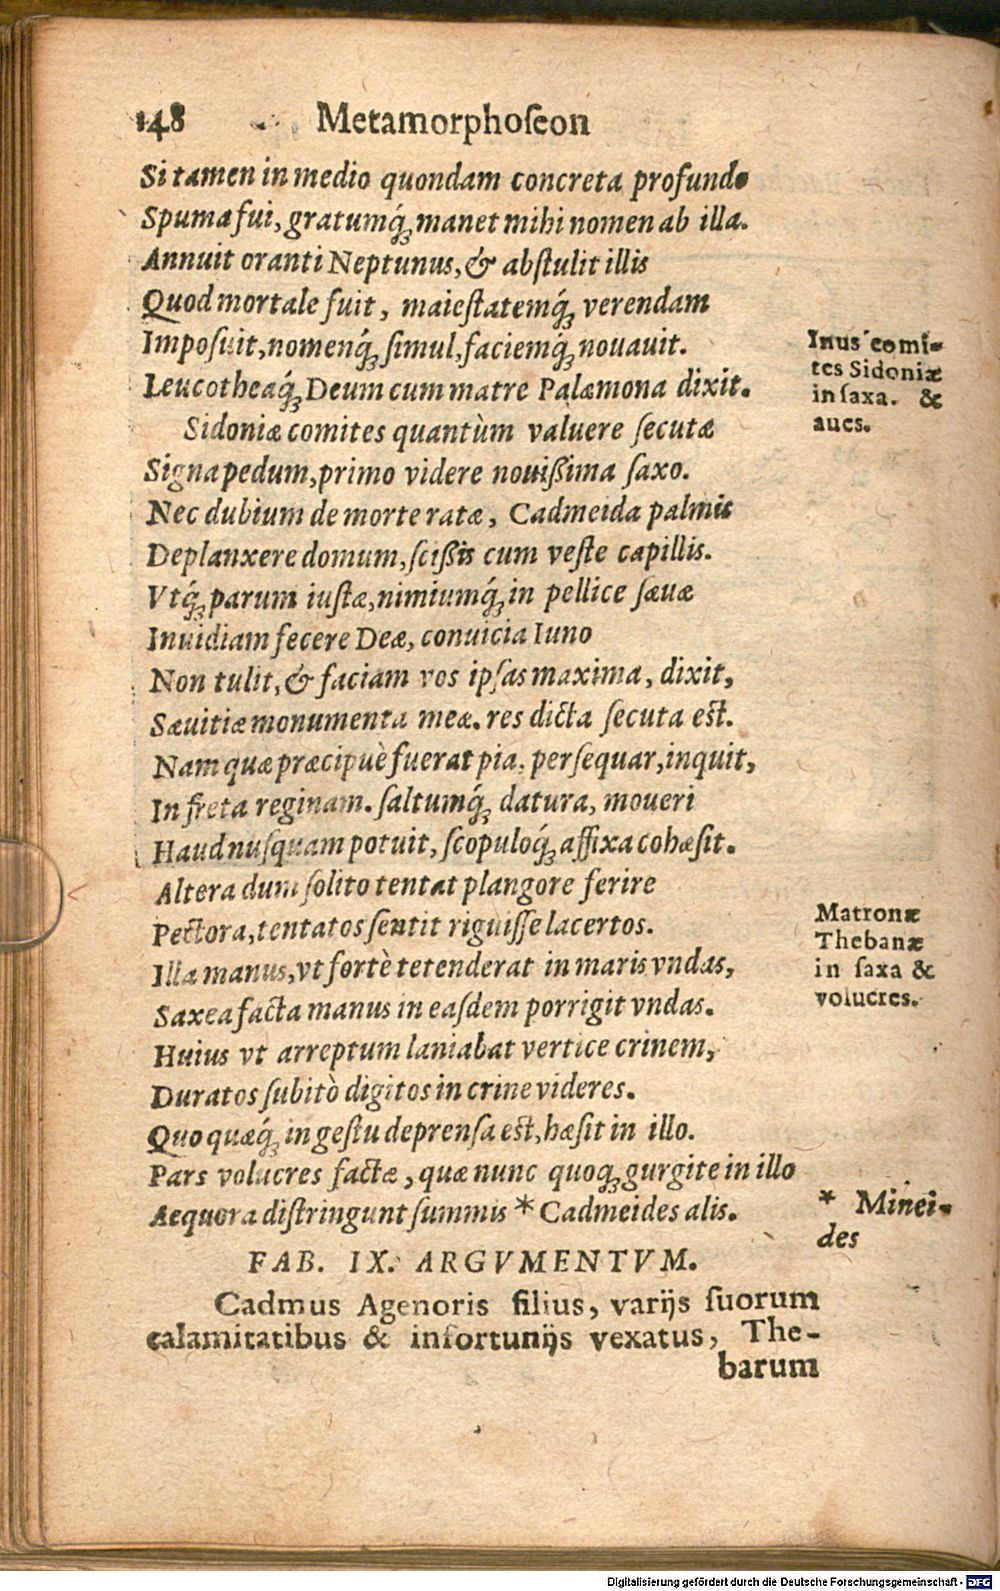 148 Metamorphoſeon
Si tamen in medio quondam concreta profundo
Spuma fui, gratumq́ꝫ manet mihi nomen ab illa.
Annuit oranti Neptunus, & abſtulit illis
Quod mortale fuit, maieſtatemq́ꝫ verendam
Impoſuit, nomenq́ꝫ ſimul, faciemq́ꝫ nouauit.
Leucotheaq́ꝫ Deum cum matre Palæmona dixit.
Inus comi-
tes Sidoniæ
in ſaxa. &
aues.
Sidoniæ comites quantùm valuere ſecutæ
Signa pedum, primo videre nouißima ſaxo.
Nec dubium de morte ratæ, Cadmeida palmis
Deplanxere domum, ſcißis cum veſte capillis.
Vtq́ꝫ parum iuſtæ, nimiumq́ꝫ in pellice ſæuæ
Inuidiam fecere Deæ, conuicia Iuno
Non tulit, & faciam vos ipſas maxima, dixit,
Sæuitiæ monumenta meæ. res dicta ſecuta eſt.
Nam quæ præcipuè fuerat pia, perſequar, inquit,
In freta reginam. ſaltumq́ꝫ datura, moueri
Haud nuſquam potuit, ſcopuloq́ꝫ affixa cohæſit.
Altera dum ſolito tentat plangore ferire
Pectora, tentatos ſentit riguiſſe lacertos.
Illa manus, vt fortè tetenderat in maris vndas,
Saxea facta manus in eaſdem porrigit vndas.
Matronæ
Thebanæ
in ſaxa &
volucres.
Huius vt arreptum laniabat vertice crinem,
Duratos ſubitò digitos in crine videres.
Quo quæq́ꝫ in geſtu deprenſa eſt, hæſit in illo.
Pars volucres factæ, quæ nunc quoqꝫ gurgite in illo
Aequora diſtringunt ſummis * Cadmeides alis.
* Minei-
des
FAB. IX. ARGVMENTVM.
Cadmus Agenoris filius, varijs ſuorum
calamitatibus & infortunijs vexatus, The-
barum
Digitalisierung gefördert durch die Deutsche Forschungsgemeinschaft - DFG